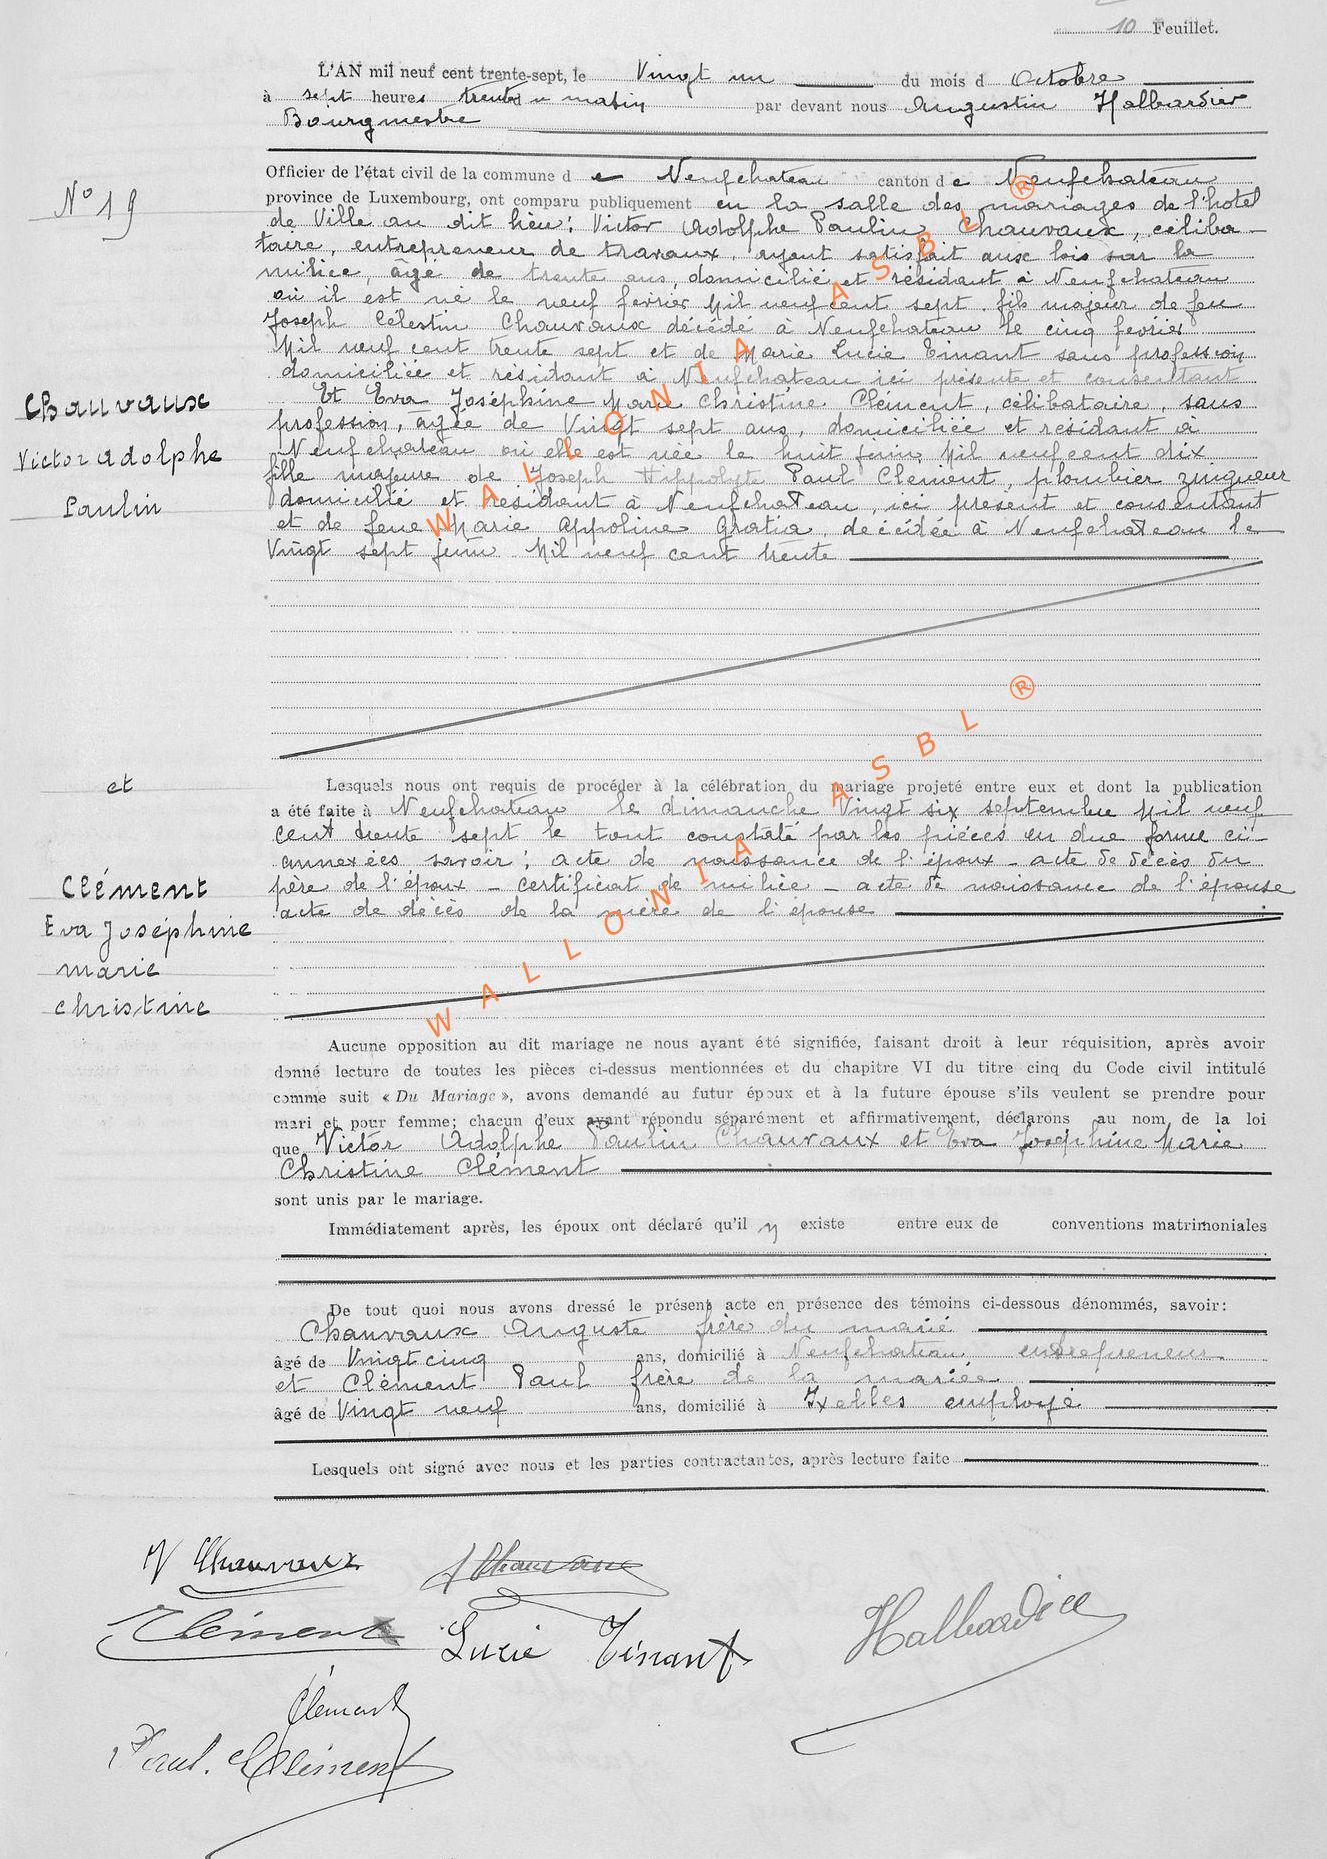 10 Feuillet.
L'AN mil neuf cent trente-sept, le Vingt un du mois d Octobre
à sept heures trente du matin par devant nous Augustin Halbardier
Bourgmestre
Officier de l'état civil de la commune de Neufchateau canton de Neufchateau
N° 19
province de Luxembourg, ont comparu publiquement en la salle des mariages de l'hotel
de Ville au dit lieu: Victor Adolphe Paulin Chauvaux, céliba-
taire, entrepreneur de travaux, ayant satisfait aux lois sur la
milice, âgé de trente ans, domicilié et résidant à Neufchateau
où il est né le neuf fevrier Mil neuf cent sept. fils majeur de feu
Joseph Célestin Chauvaux décédé à Neufchateau le cinq fevrier
Mil neuf cent trente sept et de Marie Lucie Tinant sans profession
domiciliée et résidant à Neufchateau ici présente et consentant
Et Eva Joséphine Marie Christine Clément, célibataire, sans
profession, âgée de Vingt sept ans, domiciliée et résidant à
Neufchateau où elle est née le huit juin Mil neuf cent dix
fille majeure de Joseph Hippolyte Paul Clement, plombier zingueur
domicilié et résidant à Neufchateau, ici présent et consentant
et de feue Marie Appoline Gratia, décédée à Neufchateau le
Vingt sept juin Mil neuf cent trente
Chauvaux
Victor Adolphe
Paulin
et
Clément
Eva Joséphine
marie
christine
Lesquels nous ont requis de procéder à la célébration du mariage projeté entre eux et dont la publication
a été faite à Neufchateau le dimanche Vingt six septembre Mil neuf
cent trente sept le tout constaté par les pièces en due forme ci-
annexées savoir: acte de naissance de l'époux - acte de décès du
père de l'époux - certificat de milice - acte de naissance de l'épouse
acte de décès de la mère de l'épouse
Aucune opposition au dit mariage ne nous ayant été signifiée, faisant droit à leur réquisition, après avoir
donné lecture de toutes les pièces ci-dessus mentionnées et du chapitre VI du titre cinq du Code civil intitulé
comme suit « Du Mariage », avons demandé au futur époux et à la future épouse s'ils veulent se prendre pour
mari et pour femme; chacun d'eux ayant répondu séparément et affirmativement, déclarons au nom de la loi
que Victor Adolphe Paulin Chauvaux et Eva Joséphine Marie
Christine Clément
sont unis par le mariage.
Immédiatement après, les époux ont déclaré qu'il n existe entre eux de conventions matrimoniales
De tout quoi nous avons dressé le présent acte en présence des témoins ci-dessous dénommés, savoir:
Chauvaux Auguste frère du marié
âgé de Vingt cinq ans, domicilié à Neufchateau entrepreneur
et Clément Paul frère de la mariée
âgé de Vingt neuf ans, domicilié à Ixelles employé
Lesquels ont signé avec nous et les parties contractantes, après lecture faite
V Chauvaux
A Chauvaux
Clément
Lucie Tinant
Halbardier
Clément
Paul. Clément
WALLONIA ASBL ®
WALLONIA ASBL ®